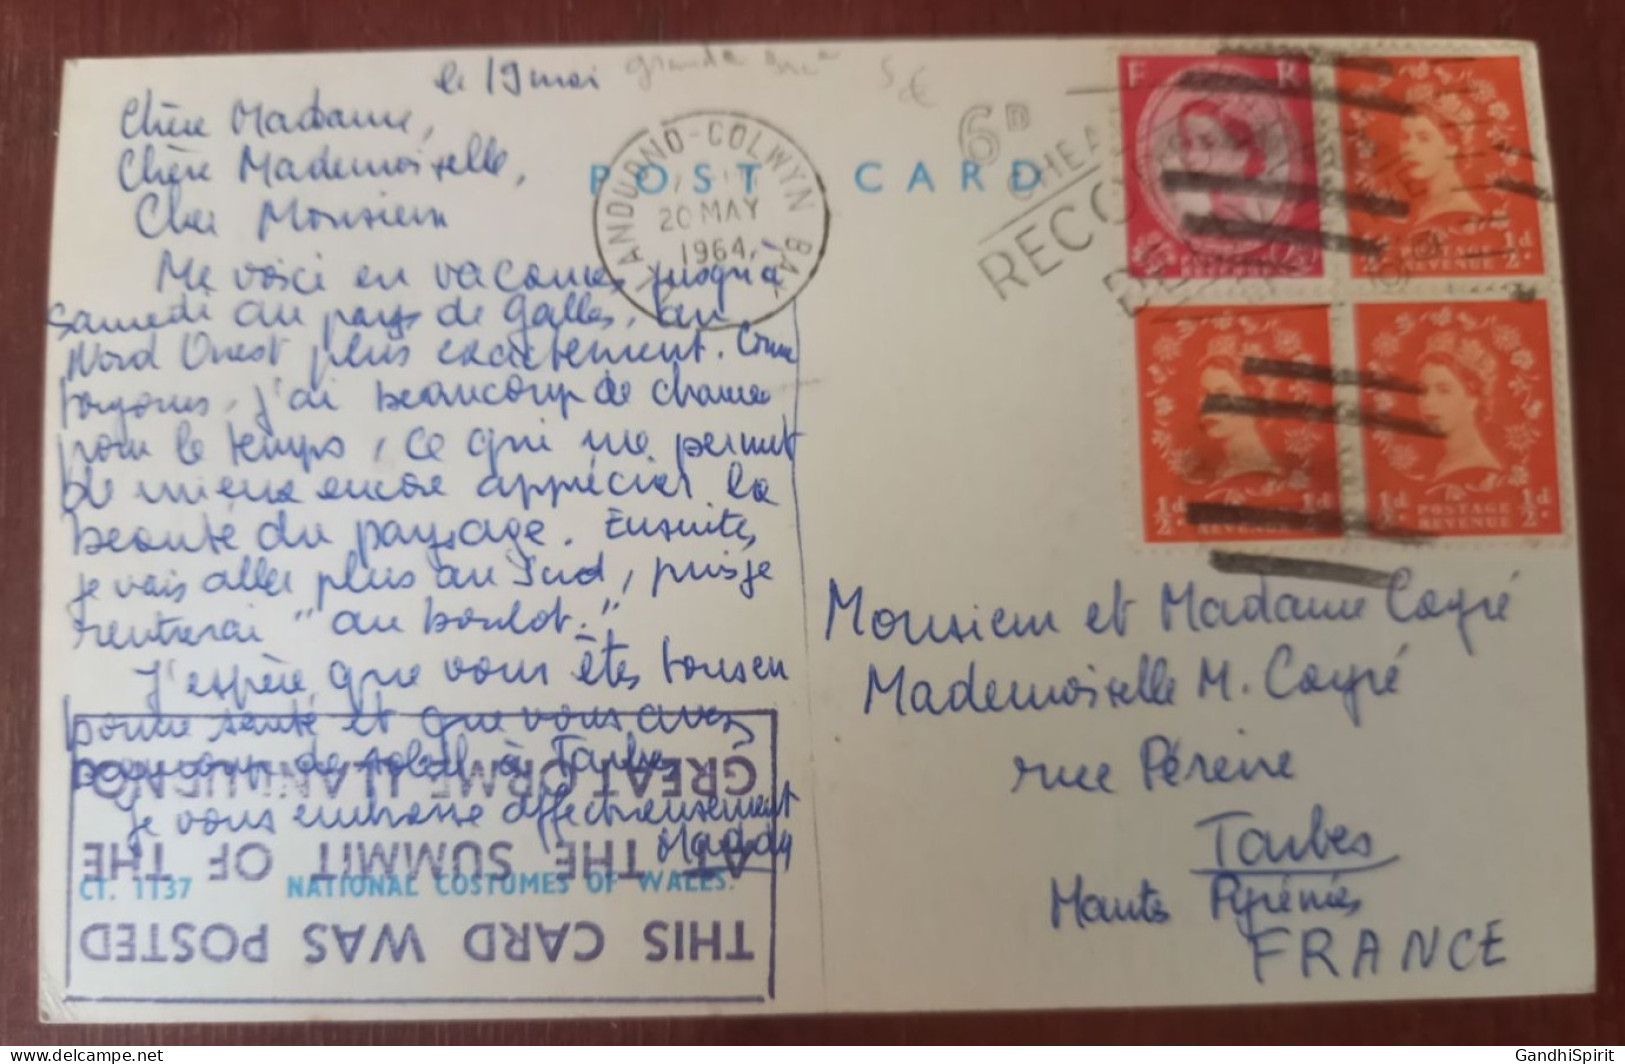 le 19 mai
5€
Chère Madame,
Chère Mademoiselle,
Cher Monsieur
POST CARD
LLANDUDNO-COLWYN BAY
20 MAY
1964
6D
CHEAP
RECO
Me voici en vacances jusqu'à
Samedi au pays de galles, au
Nord Ouest plus exactement. Comme
toujours, j'ai beaucoup de chance
pour le temps, ce qui me permet
de mieux encore apprécier la
beauté du paysage. Ensuite,
je vais aller plus au Sud, puis je
rentrerai "au boulot."
J'espère que vous êtes tous en
bonne santé et que vous avez
beaucoup de soleil à Tarbes
je vous embrasse affectueusement
Maddy
THIS CARD WAS POSTED
AT THE SUMMIT OF THE
GREAT ORME LLANDUDNO
CT. 1137 NATIONAL COSTUMES OF WALES.
E R
POSTAGE
REVENUE
½d.
REVENUE
½d. ½d.
POSTAGE
REVENUE
½d. ½d.
Monsieur et Madame Cayré
Mademoiselle M. Cayré
rue Péreire
Tarbes
Hautes Pyrénées
FRANCE
GandhiSpirit
delcampe.net